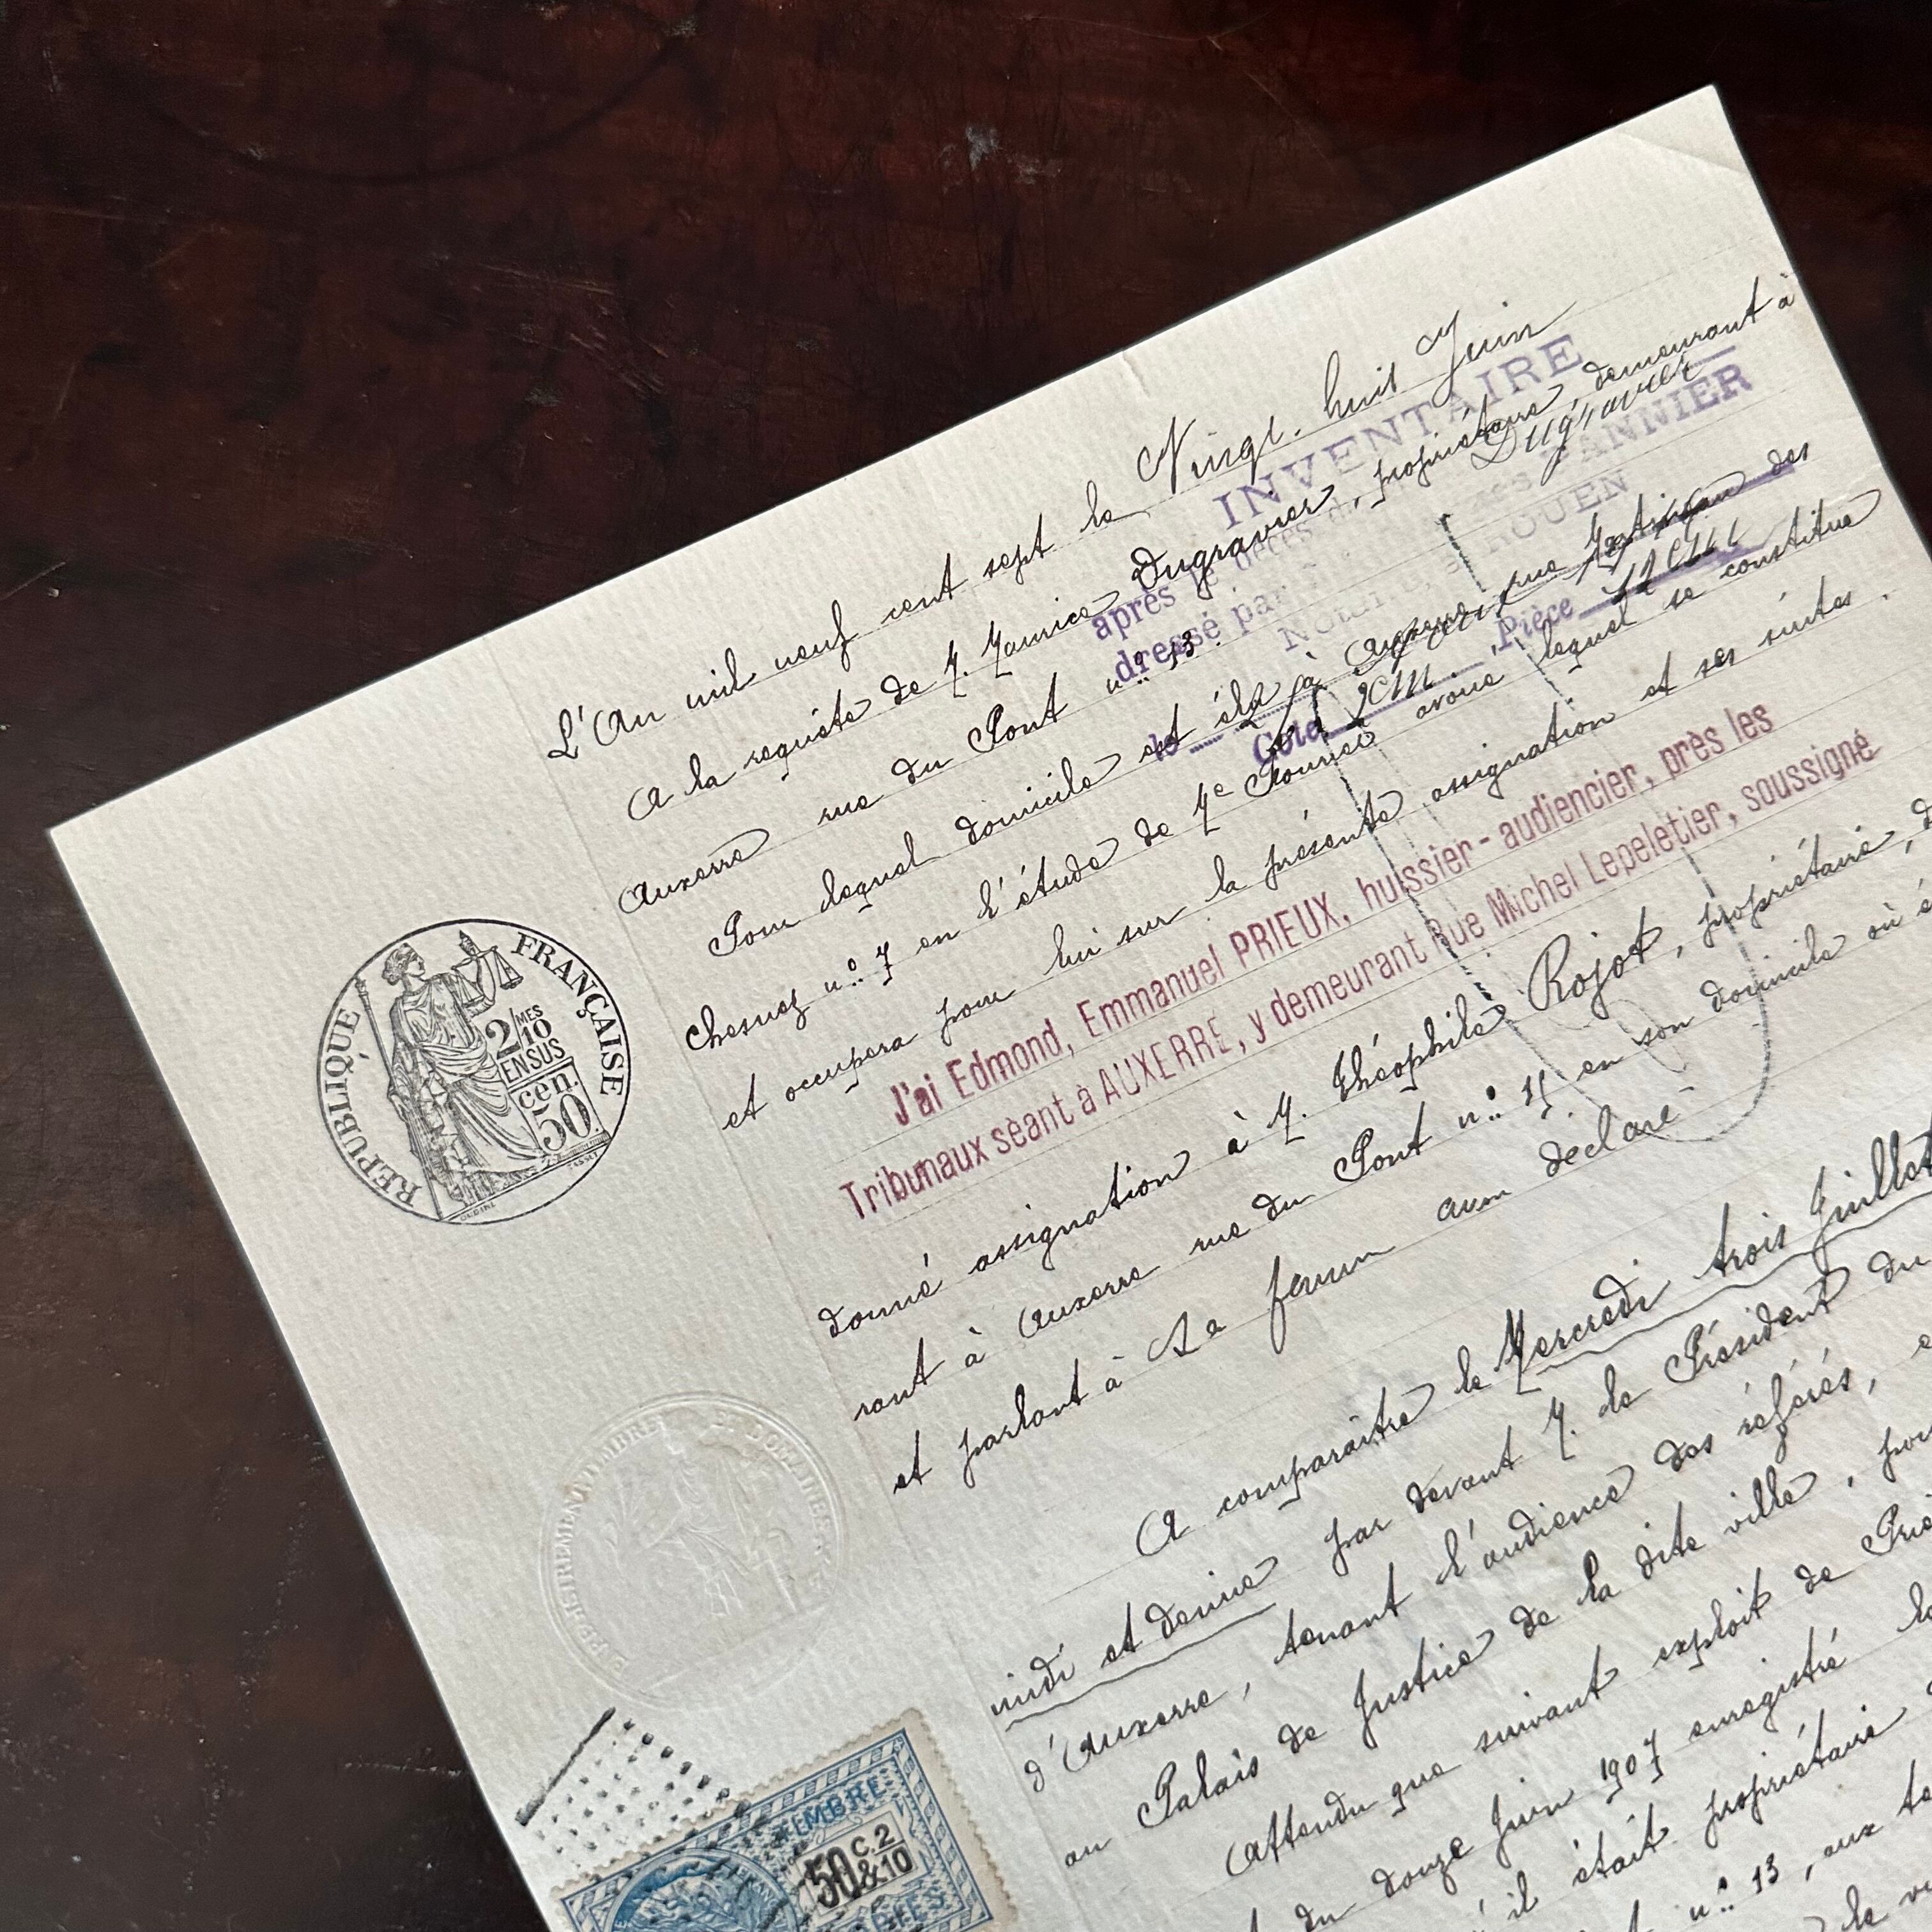 L'An mil neuf cent sept le Vingt-huit Juin
A la requête de M. Maurice Dugravier, propriétaire, demeurant à
Auxerre rue du Pont n° 13.
Pour lequel domicile est élu à Auxerre rue des
Chesnez n° 7 en l'étude de Me avoué lequel se constitue
et occupera pour lui sur la présente assignation et ses suites.
J'ai Edmond, Emmanuel PRIEUX, huissier-audiencier, près les
Tribunaux séant à AUXERRE, y demeurant Rue Michel Lepeletier, soussigné
donné assignation à M. Théophile Rojot, propriétaire, d
rant à Auxerre rue du Pont n° 15 en son domicile où é
et parlant à Sa femme declaré
A comparaître le Mercredi trois Juillet
midi et demie par devant M. le Président du
d'Auxerre, tenant l'audience des référés, 
au Palais de Justice de la dite ville, pou
Attendu que suivant exploit de Prie
du douze Juin 1907 enregistré le
il était propriétaire
n° 13, aux te
INVENTAIRE
après le décès
dressé par
ROUEN
Dugravier
Cote
Pièce
RÉPUBLIQUE FRANÇAISE
2/10
MES
EN SUS
50
cen.
OUDINÉ
TIMBRE
50 C. 2
& 10